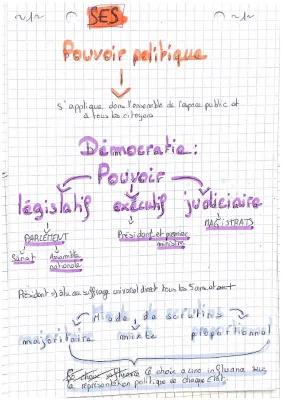 ~1~ SES ~1~
Pouvoir politique
s'applique dans l'ensemble de l'espace public et
à tous les citoyens
Démocratie :
Pouvoir
législatif exécutif judiciaire
PARLEMENT Président et premier ministre MAGISTRATS
Sénat Assemblée nationale
Président élu au suffrage universel direct tous les 5 ans
Mode de scrutin
majoritaire mixte proportionnel
Ce choix a une influence sur
la représentation politique de chaque État.